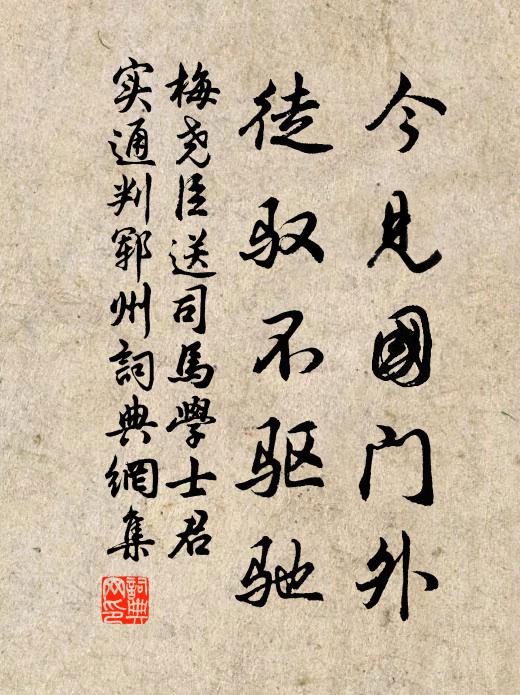 今见國门外
徒驭不驱驰
梅尧臣送司馬學士君
实通判鄆州詞典網集
詞典网印